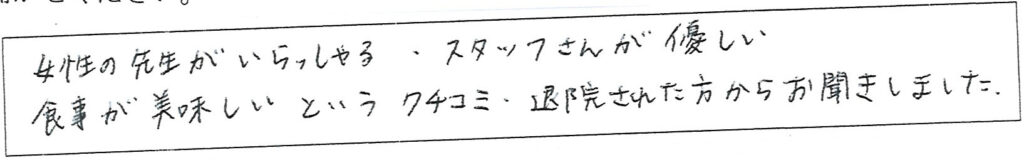 ください。
女性の先生がいらっしゃる ・ スタッフさんが優しい
食事が美味しいという クチコミ・退院された方からお聞きしました.